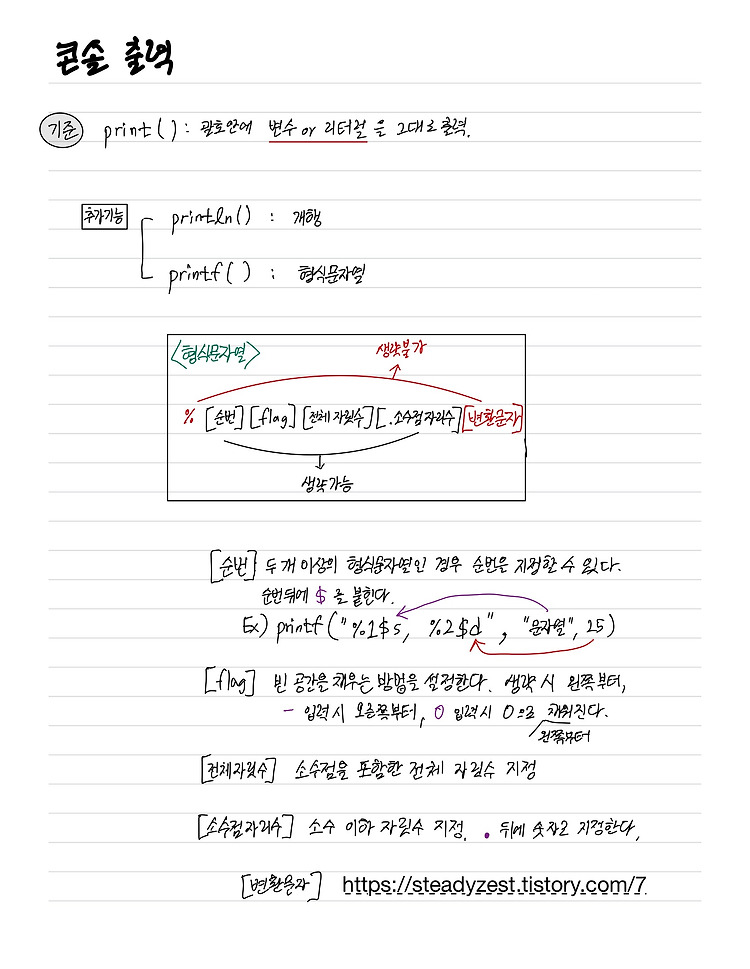 콘솔 출력
기준 print() : 괄호안에 변수 or 리터럴 을 그대로 출력.
추가기능 println() : 개행
printf() : 형식문자열
<형식문자열> 생략불가
% [순번] [flag] [전체 자릿수] [.소수점 자리수] [변환문자]
생략가능
[순번] 두 개 이상의 형식문자열인 경우 순번을 지정할 수 있다.
순번뒤에 $ 를 붙힌다.
Ex) printf("%1$s, %2$d", "문자열", 25)
[flag] 빈 공간을 채우는 방법을 설정한다. 생략 시 왼쪽부터,
- 입력 시 오른쪽부터, 0 입력 시 0으로 채워진다.
왼쪽부터
[전체자릿수] 소수점을 포함한 전체 자릿수 지정
[소수점자리수] 소수 이하 자릿수 지정. . 뒤에 숫자로 지정한다.
[변환문자] https://steadyzest.tistory.com/7